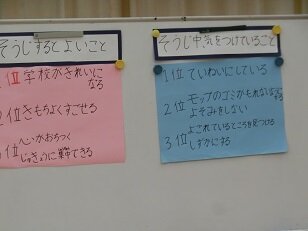 そうじするとよいこと
1位 学校がきれいに
なる
2位 きもちよくすごせる
位 へいがおちつく
じゅぎょうに集中できる
そうじ中気をつけていること
1位 ていねいにしている
2位 モップのゴミがもれないようにする
よそみをしない
3位 よごれているところを見つける
しずかにする